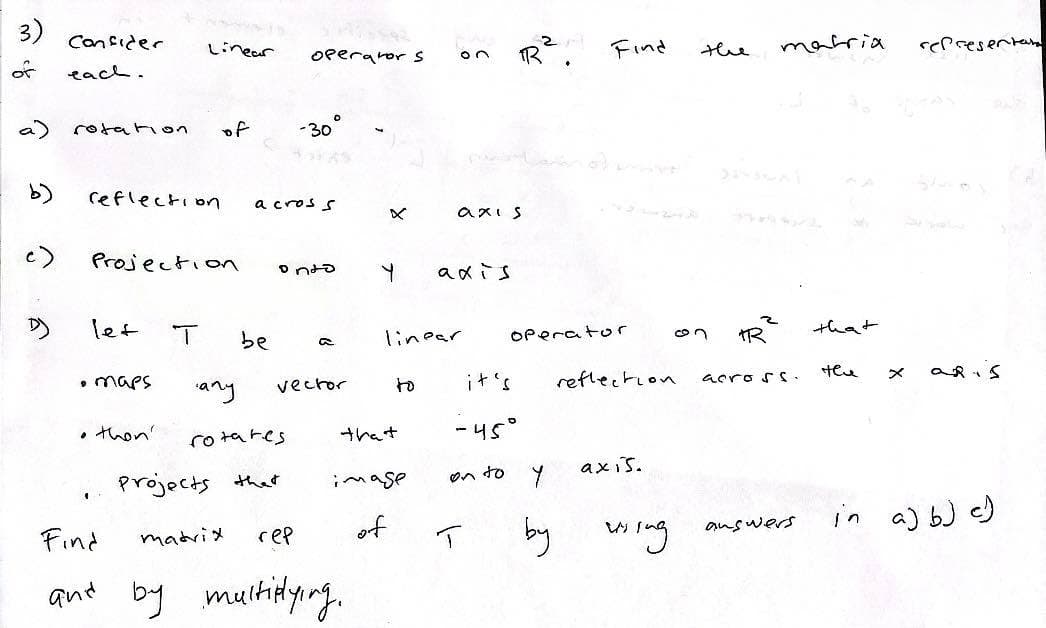 3) Consider Linear operators on ℝ². Find the matrix representan
of each.
a) rotation of -30°
b) reflection across x axis
c) Projection onto y axis
D) let T be a linear operator on ℝ² that
• maps any vector to it's reflection across. the x axis
• then rotates that -45°
• projects that image onto y axis.
Find matrix rep of T by using answers in a) b) c)
and by multiplying.